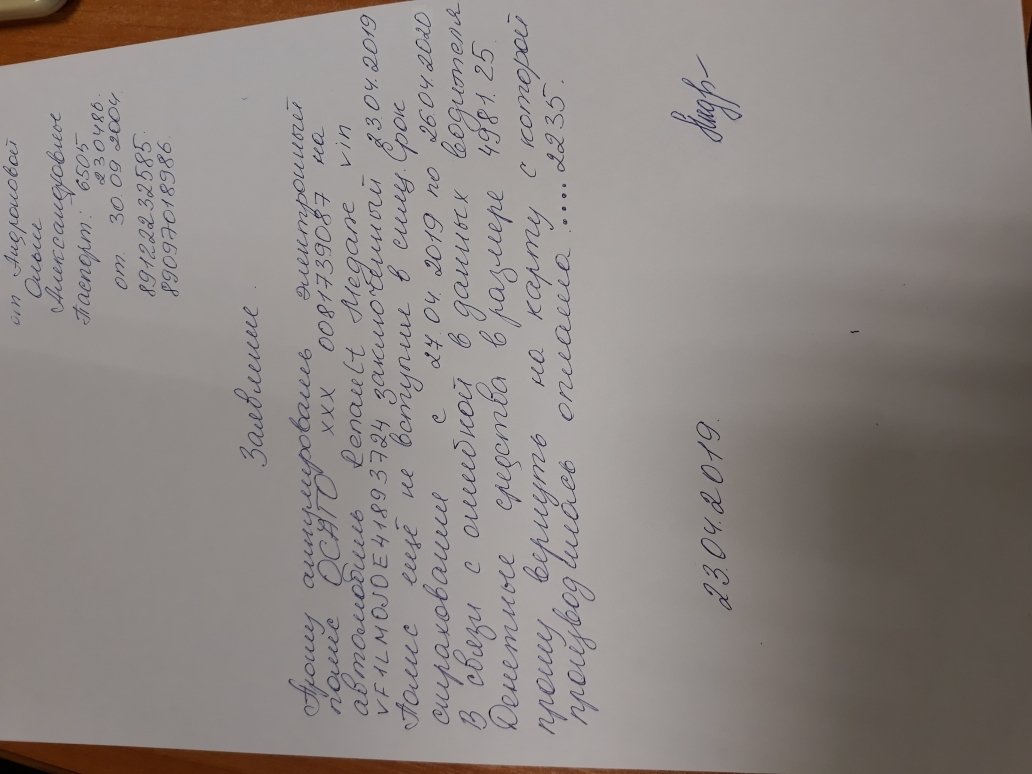 от Андроновой
Ольги
Александровны
Паспорт: 6505
230486.
от 30.09.2004.
89122232585.
89097018986.
Заявление.
Прошу аннулировать электронный
полис ОСАГО ХХХ 0081739087 на
автомобиль Renault Megane vin
VF1LM0J0E41893724 заключённый 23.04.2019
Полис ещё не вступил в силу. Срок
страхования с 27.04.2019 по 26.04.2020
В связи с ошибкой в данных водителя
Денежные средства в размере 4981.25.
прошу вернуть на карту с которой
производилась оплата ....2235.
23.04.2019.